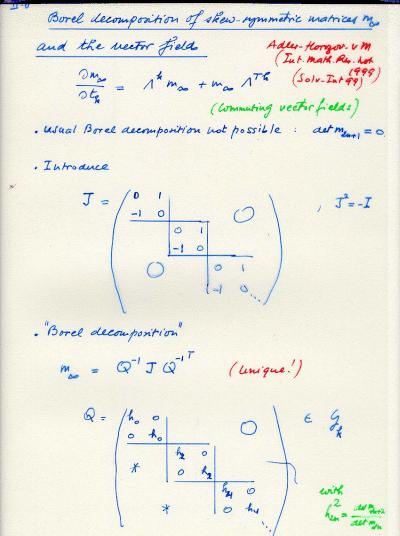 Borel decomposition of skew-symmetric matrices m∞
and the vector fields
Adler-Horozov-v M
(Int. Math. Res. Not
1999)
(Solv-Int 99)
∂m∞/∂t_k = Λ^k m∞ + m∞ Λ^{Tk}
(Commuting vector fields)
• Usual Borel decomposition not possible : det m_{2n+1} = 0.
• Introduce
J = ( 0 1
-1 0
0 1
-1 0
0 1
-1 0 ... ) , J² = -I
O
O
• "Borel decomposition"
m∞ = Q^{-1} J Q^{-1T} (Unique!)
Q = ( h₀ 0
0 h₀
h₂ 0
0 h₂
h₄ 0
0 h₄ ... ) ∈ G_k
O
*
*
with
h²_{2n} = det m_{2n+2} / det m_{2n}